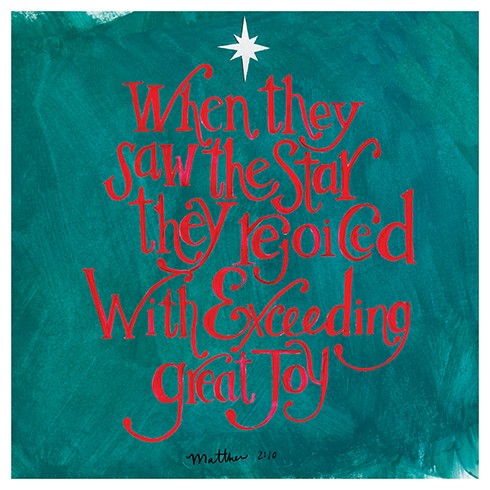 When they
saw the Star
they rejoiced
With Exceeding
great Joy
Matthew 2:10